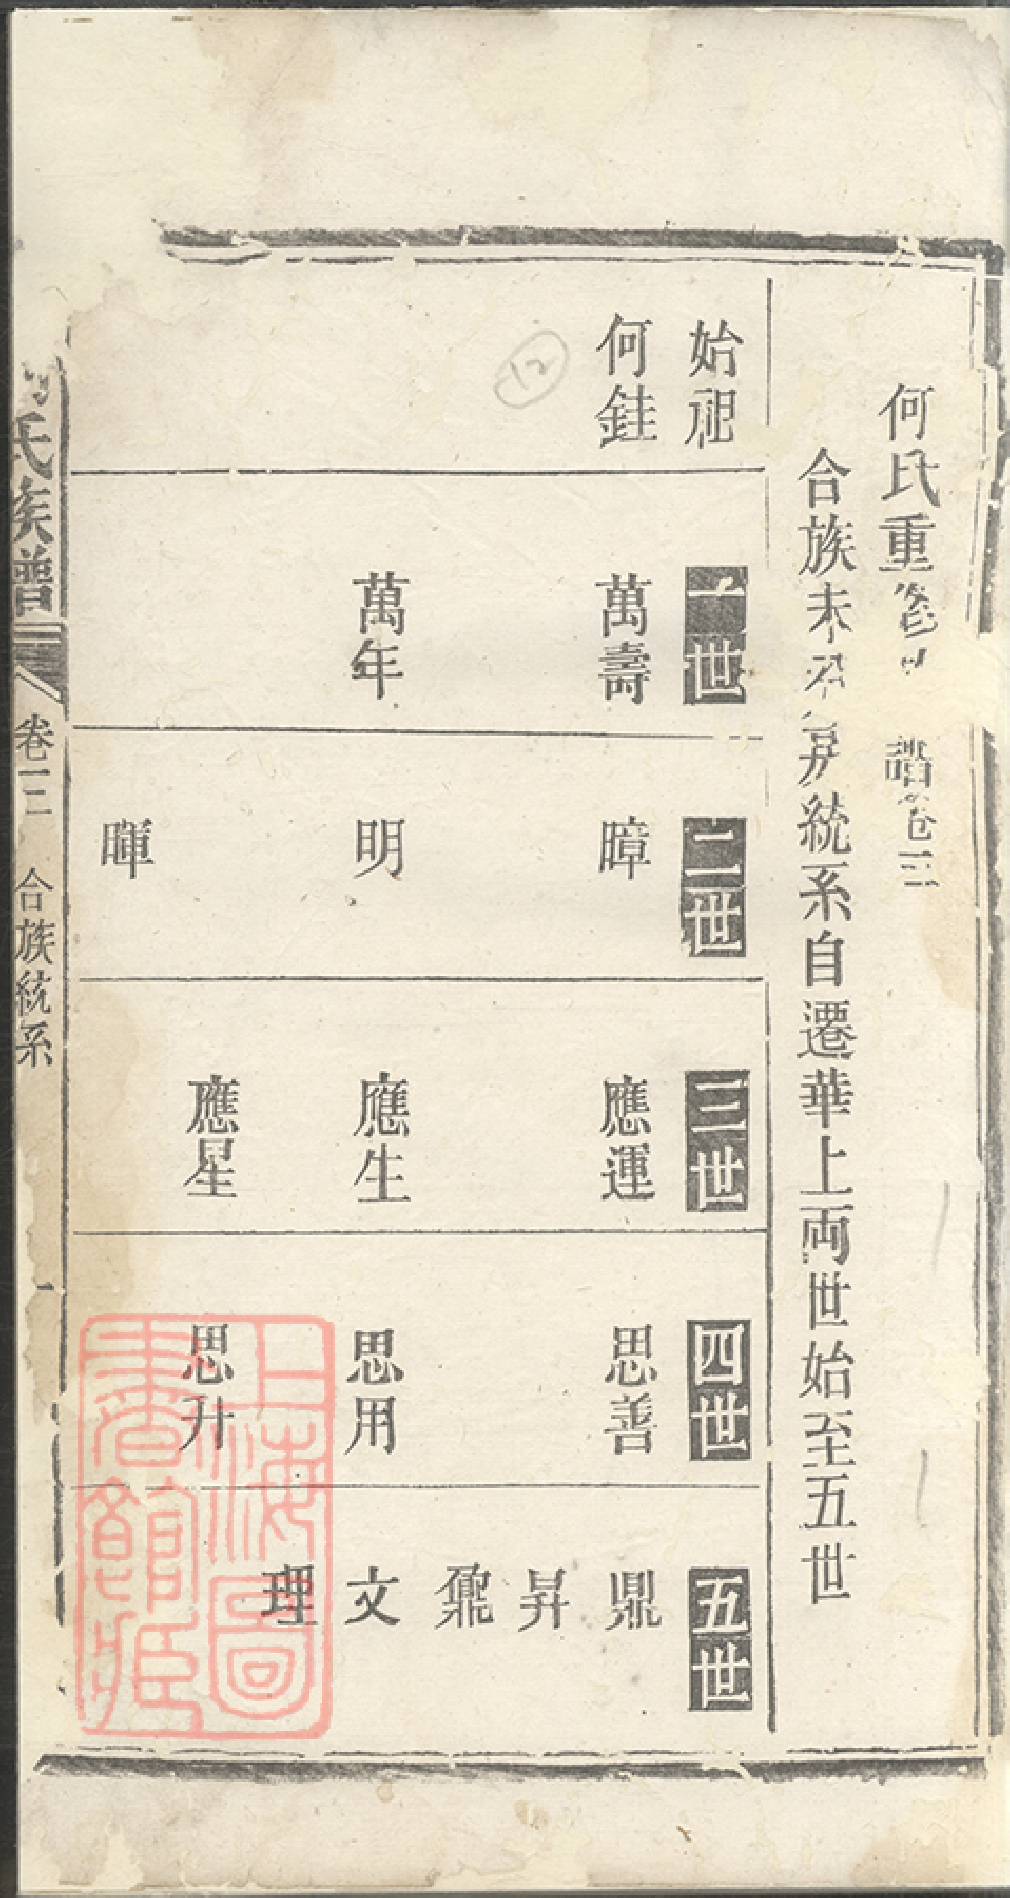 何氏重修 譜卷三
合族未分房統系自遷華上兩世始至五世
始祖
何銈
一世
萬壽
萬年
二世
暲
明
暉
三世
應運
應生
應星
四世
思善
思用
思升
五世
鼎
昇
鼐
文
理
氏族譜
卷三
合族統系
一
上海圖
書館藏
12